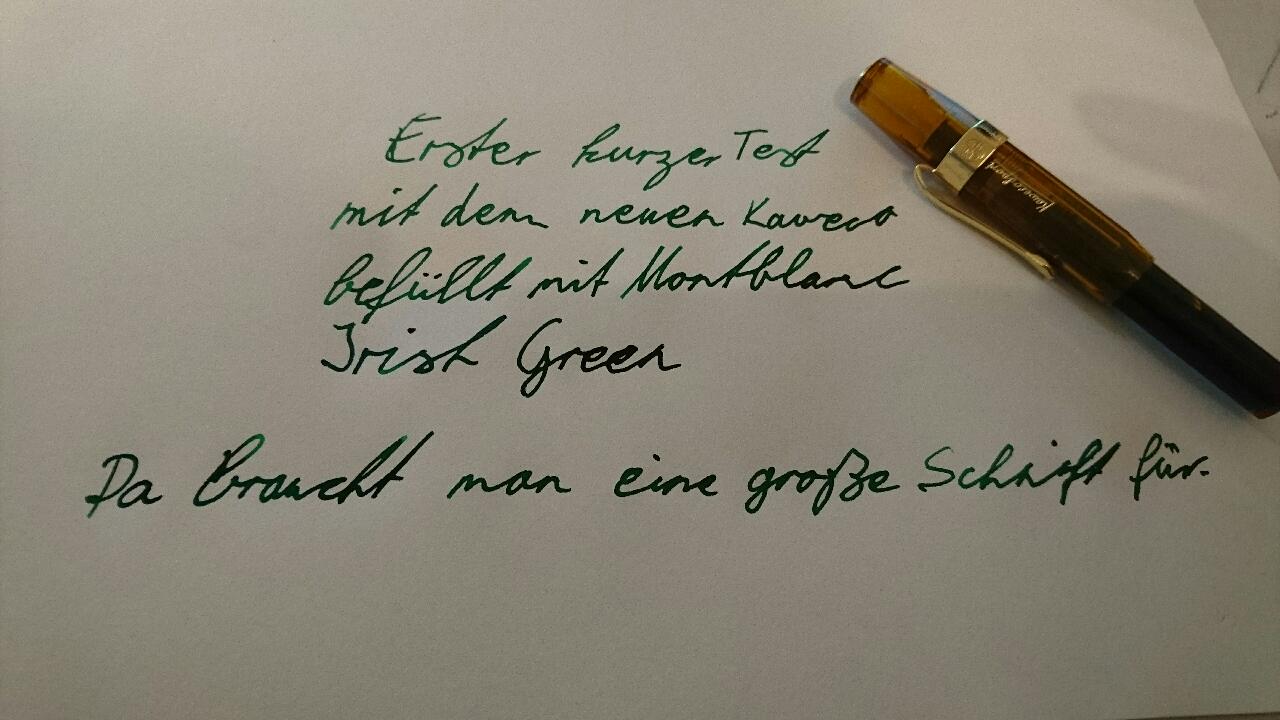 Erster kurzer Test
mit dem neuen Kaweco
befüllt mit Montblanc
Irish Green
Da braucht man eine große Schrift für.
Kaweco Sport